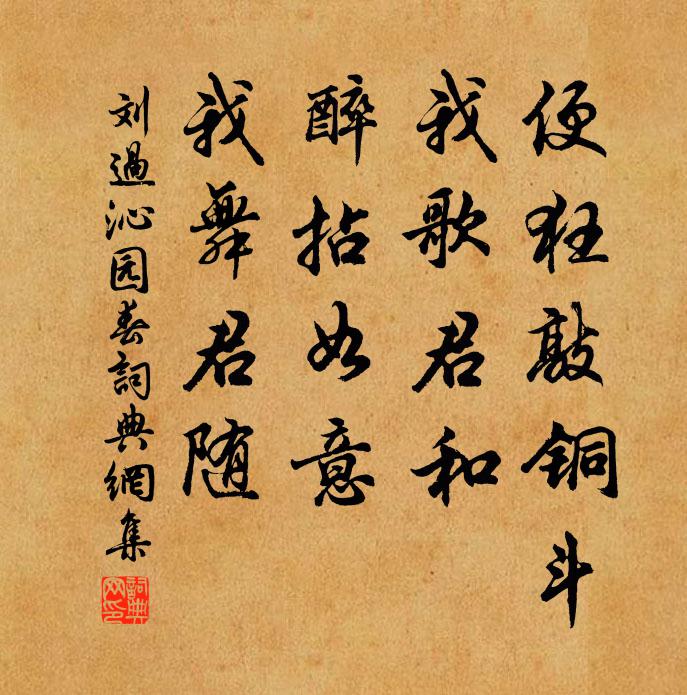 便狂敲铜斗
我歌君和
醉拈如意
我舞君随
刘过沁园春詞典網集
詞典网印